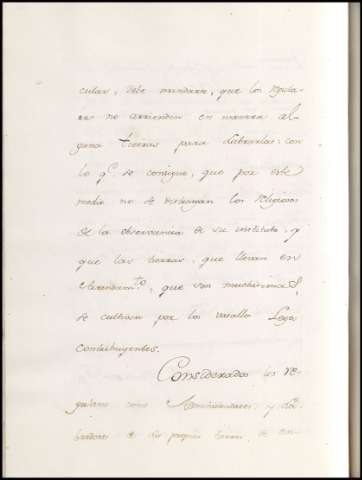 cular, debe mandarse, que los Regula-
res no arrienden en manera al-
guna tierras para labrarlas: con
lo q.^e se consigue, que por este
medio no se distraigan los Religiosos
de la observancia de su instituto, y
que las tierras, que llevan en
Arrendam.^to, que son muchisimas,
se cultiven por los vasallos Legos
Contribuyentes.
Considerados los Re-
gulares como Administradores y La-
bradores de sus propias tierras, se en-